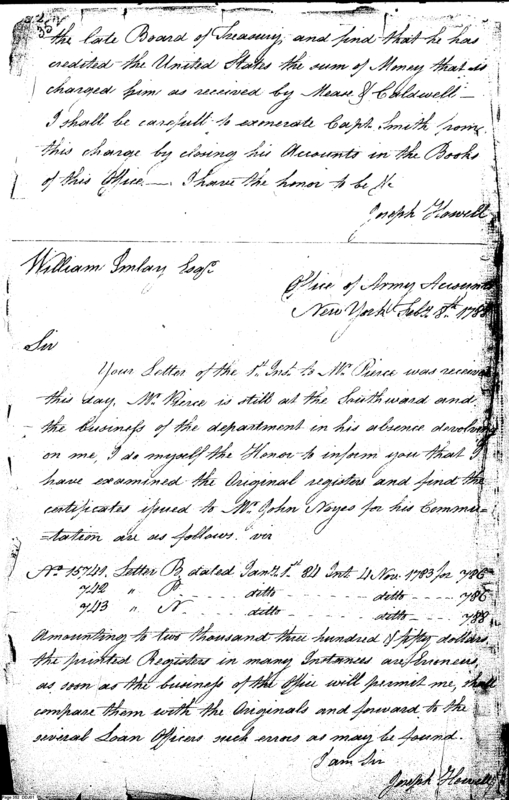 352
the late Board of Treasury, and find that he has
credited the United States the sum of Money that is
charged him as received by Mease & Caldwell —
I shall be carefull to exenerate Capt. Smith from
this charge by closing his Accounts in the Books
of this Office — I have the honor to be &c
Joseph Howell
William Imlay, Esqr.
Office of Army Accounts
New York Feby. 8th. 1788
Sir
Your Letter of the 1st. Inst. to Mr. Pierce was received
this day, Mr. Pierce is still at the Southward and
the business of the department in his absence devolving
on me, I do myself the Honor to inform you that I
have examined the Original registers and find the
certificates issued to Mr. John Noyes for his Commu=
=tation are as follows. viz
No. 15741. Letter B, dated Jany. 1st. 84 Int. 4 Nov. 1783 for 786
742 " P ditto ditto 786
743 " N ditto ditto 788
Amounting to two thousand three hundred & fifty dollars,
the printed Registers in many Instances are Erroneus,
as soon as the business of the office will permit me, shall
compare them with the Originals and forward to the
several Loan Officers such errors as may be found.
I am Sir
Joseph Howell